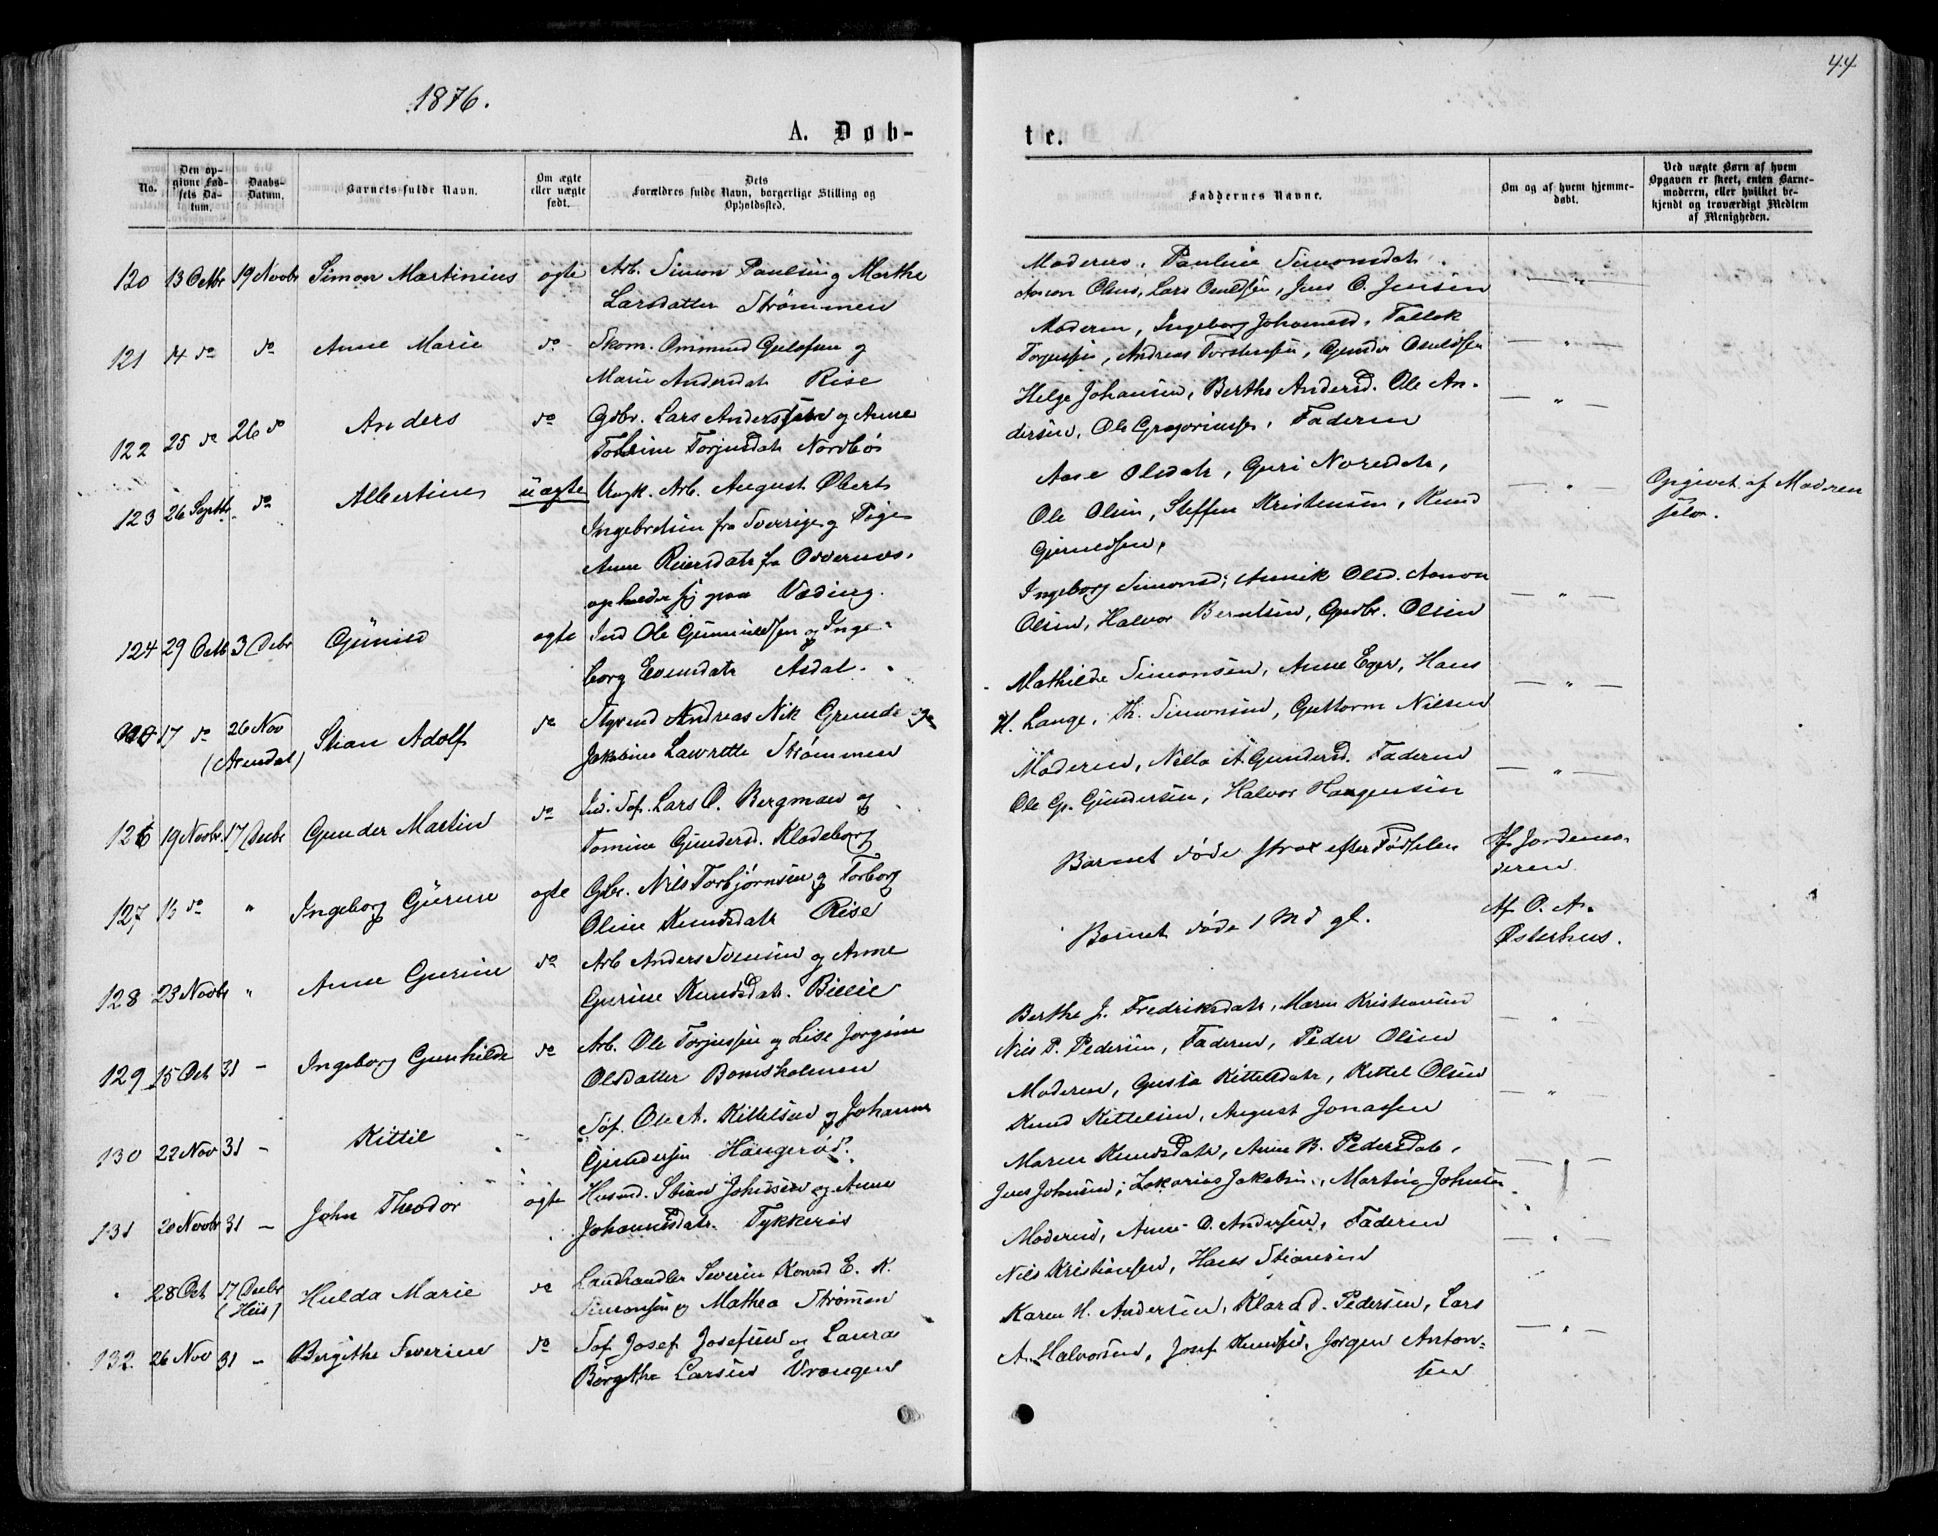 1876.
44
A. Døb-
te.
No.
Den op-
givne Fød-
sels Da-
tum.
Daabs-
Datum.
Barnets fulde Navn.
Om ægte
eller uægte
født.
Dets
Forældres fulde Navn, borgerlige Stilling og
Opholdssted.
Faddernes Navne.
Om og af hvem hjemme-
døbt.
Ved uægte Børn af hvem
Opgaven er skeet, enten Barne-
moderen, eller hvilket be-
kjendt og troværdigt Medlem
af Menigheden.
120 13 Octbr 19 Novbr Simon Martinius ægte Arb. Simon Paulsen og Marthe
Larsdatter Strømmen
Moderen, Pauline Simonsdatr.
Aanon Olsen, Lars Osuldsen, Jens O. Jensen
121 14 do do Anne Marie do Skom. Ommund Gulofsen og
Marie Andersdatr Rise
Moderen, Ingeborg Johannesd. Tallak
Torjussen, Andreas Torstensen, Gunder Osuldsen
122 25 do 26 do Anders do Gdbr. Lars Anderssen og Anne
Torjusdatr Nordbøe
Helge Johansen, Berthe Andersd. Ole An-
dersen, Ole Gregoriussen, Faderen
123 26 Septbr do Albertine uægte Ungk. Arb. August Obert
Ingebretsen fra Sverrige og Pige
Anne Reiersdatr fra
opholder sig paa Væding.
Aase Olsdatr, Guri Noresdatr,
Ole Olsen, Steffen Kristensen, Knud
Gjeruldsen,
Opgivet af Moderen
selv.
124 29 Octb 3 Debr Gunild ægte Ind Ole Gunnuldsen og Inge-
borg Evensdatr Asdal.
Ingeborg Simonsd; Annik Olsd. Aanon
Olsen, Halvor Berntsen, Gudbr. Olsen
17 do 26 Nov Stian Adolf do Styrmd Andreas Nik Grunde og
(Arendal) Jakobine Lawrette Strømmen
Mathilde Simonsen, Anne Eger, Hans
H. Lange, Th. Simonsen, Guttorm Nilsen
126 19 Novbr. 17 Decbr Gunder Martin do Ind. Søf. Lars O. Bergman og
Tomine Gundersd. Klodeborg
Moderen, Nella A. Gundersd. Faderen
Ole Gr. Gundersen, Halvor Haagensen
127 13 do " Ingeborg Gurine ægte Gbr. Nils Torbjørnsen og Torborg
Oline Knudsdatr Rise
Barnet døde strax efter Fødselen
Af Jordemo-
deren
128 23 Novbr " Anne Gurine do Arb Anders Svensen og Anne
Gurine Knudsdatr. Bieie
Barnet døde 1 Md gl.
Af O. A.
Østerhus.
129 15 Oct 31 - Ingeborg Gunhilde do Arb. Ole Torjussen og Lise Jørgine
Olsdatter Bomsholmen
Berthe J. Fredriksdatr, Maren Kristensen
Niels P. Pedersen, Faderen, Peder Olsen
130 22 Nov 31 - Kittil - Søf. Ole A. Kittelsen og Johanne
Gundersen Haugerød.
Moderen, Gusta Kittelsdatr, Kittel Olsen
Knud Kittelsen, August Jonassen
131 20 Novbr 31 - John Theodor ægte Husmd. Stian Johnsen og Anne
Johannesdatr. Tykkeraas
Maren Knudsdatr, Anne B. Pedersdatr,
Jens Johnsen; Zakarias Jakobsen, Martin Johnsen
28 Oct 17 Decbr Hulda Marie do Landhandler Severin Konrad E. K.
(Hiis) Simonsen og Mathea Strømen
Moderen, Anne O. Andersen, Faderen
Nils Kristiansen, Hans Stiansen
132 26 Nov 31 - Bergithe Severine do Søf Josef Josefsen og Laura
Børgithe Larsen Vrængen
Karen H. Andersen, Klara d. Pedersen, Lars
A. Halvorsen, Josef Knudsen, Jørgen Anton-
sen